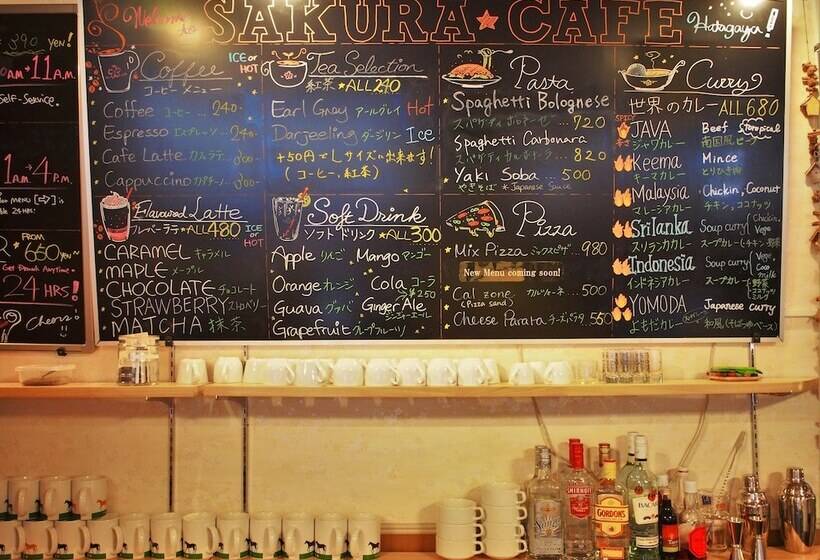 Welcome to SAKURA ★ CAFE Hatagaya!
390 YEN!
11 A.M.
Self-Service.
1 → 4 P.M.
24 HRS!
FROM 650 YEN~
Get Drunk Anytime
24 HRS!
Cheers!
Coffee ICE or HOT
コーヒー メニュー
Coffee コーヒー ... 240-
Espresso エスプレッソ ... 240-
Cafe Latte カフェラテ
Cappuccino カプチーノ
Tea Selection
紅茶 ★ALL 240
Earl Grey アールグレイ Hot
Darjeeling ダージリン Ice
+50円でLサイズ出来ます!
(コーヒー、紅茶)
Pasta
Spaghetti Bolognese
720
Spaghetti Carbonara
820
Yaki Soba ... 500
やきそば *Japanese Sauce
Curry
世界のカレー ALL 680
SPICY
辛さ
JAVA Beef Tropical
ジャワカレー 南国風ビーフ
Keema Mince
キーマカレー とりひき肉
Malaysia Chicken, Coconut
マレーシアカレー チキン、ココナッツ
Srilanka Soup curry (Chicken, Vege
スリランカカレー スープカレー(チキン、野菜
Indonesia Soup curry
インドネシアカレー スープカレー
YOMODA Japanese curry
よもだカレー 和風(そばつゆベース)
Flavoured Latte
フレーバーラテ ★ALL 480 ICE or HOT
CARAMEL キャラメル
MAPLE メープル
CHOCOLATE チョコレート
STRAWBERRY ストロベリー
MATCHA 抹茶
Soft Drink
ソフトドリンク ★ALL 300
Apple りんご Mango マンゴー
Orange オレンジ Cola コーラ
Guava グァバ Ginger Ale
ジンジャーエール
Grapefruit グレープフルーツ
Pizza
Mix Pizza ミックスピザ ... 980
New Menu coming soon!
Cal zone カルツォーネ ... 500
(Pizza sand)
Cheese Parata チーズパラタ ... 550
SMIRNOFF
GORDON'S
BACARDI